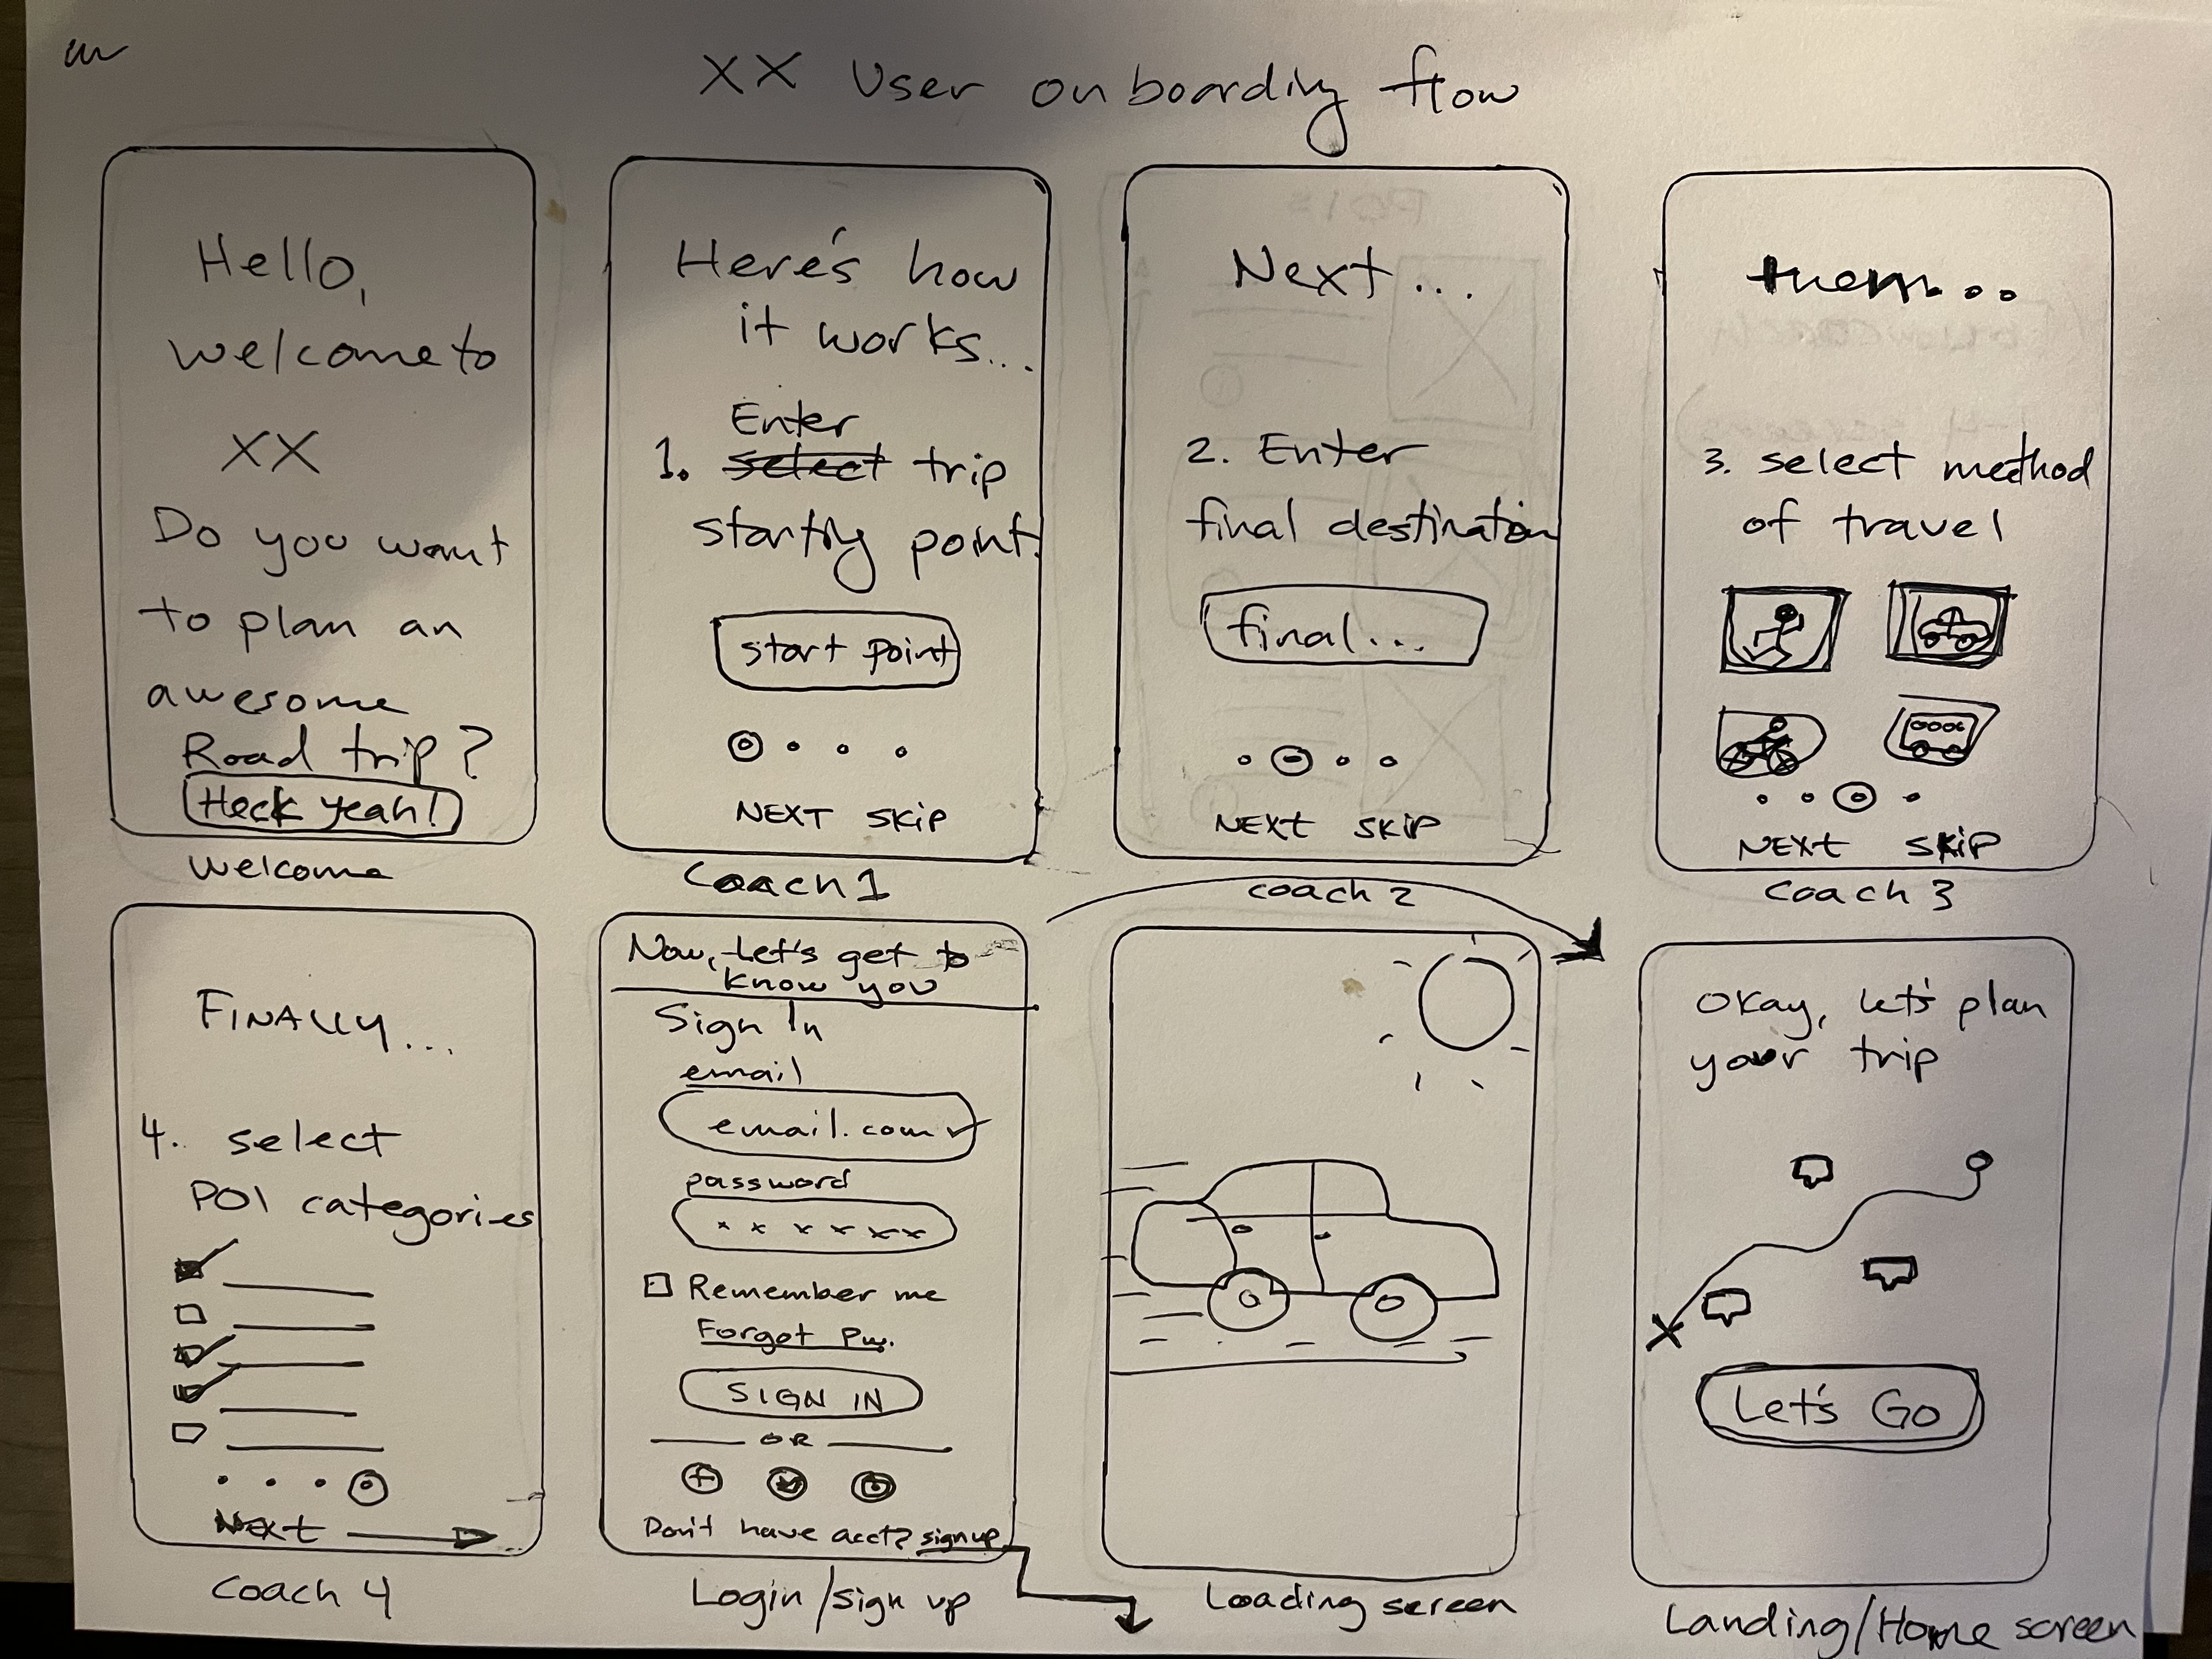 XX User onboarding flow
Hello,
welcome to
XX
Do you want
to plan an
awesome
Road trip?
Heck yeah!
Welcome
Here's how
it works...
Enter
1. select trip
starting point.
start point
NEXT SKIP
Coach 1
Next...
2. Enter
final destination
final...
NEXT SKIP
coach 2
then...
3. select method
of travel
NEXT SKIP
Coach 3
FINALLY...
4. select
POI categories
Next
Coach 4
Now, Let's get to
know you
Sign In
email
email.com
password
x x x x x x
Remember me
Forgot Pw.
SIGN IN
OR
Don't have acct? signup
Login/sign up
Loading screen
Okay, let's plan
your trip
Let's Go
Landing/Home screen